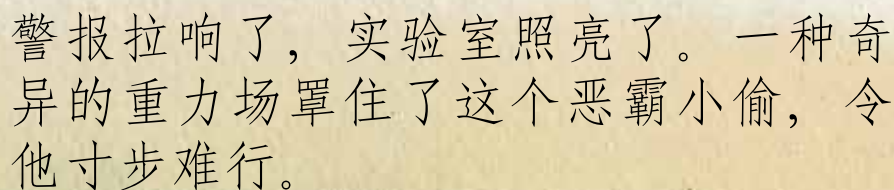 警报拉响了，实验室照亮了。一种奇
异的重力场罩住了这个恶霸小偷，令
他寸步难行。